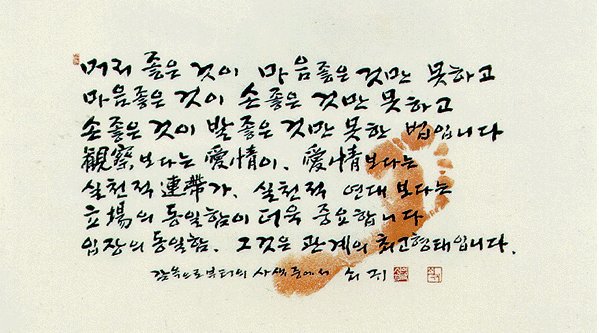 머리 좋은 것이 마음좋은 것만 못하고
마음좋은 것이 손좋은 것만 못하고
손좋은 것이 발좋은 것만 못한 법입니다
觀察보다는 愛情이, 愛情보다는
실천적 連帶가, 실천적 연대보다는
立場의 동일함이 더욱 중요합니다
입장의 동일함. 그것은 관계의 최고형태입니다.
감옥으로부터의 사색 중에서